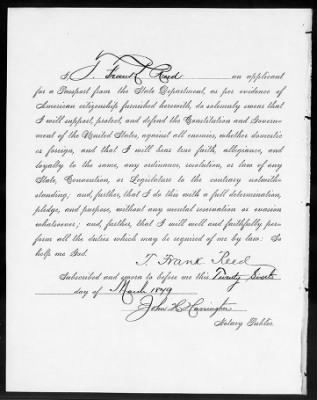 I, T. Frank Reed an applicant
for a Passport from the State Department, as per evidence
of American citizenship furnished herewith, do solemnly swear that
I will support, protect, and defend the Constitution and Govern-
ment of the United States, against all enemies, whether domestic
or foreign, and that I will bear true faith, allegiance, and
loyalty to the same, any ordinance, resolution, or law of any
State, Convention, or Legislature to the contrary notwith-
standing; and, further, that I do this with a full determination,
pledge, and purpose, without any mental reservation or evasion
whatsoever; and, further, that I will well and faithfully per-
form all the duties which may be required of me by law: So
help me God.
T. Frank Reed
Subscribed and sworn to before me this Twenty
day of March 1879
John H. Harrington
Notary Public